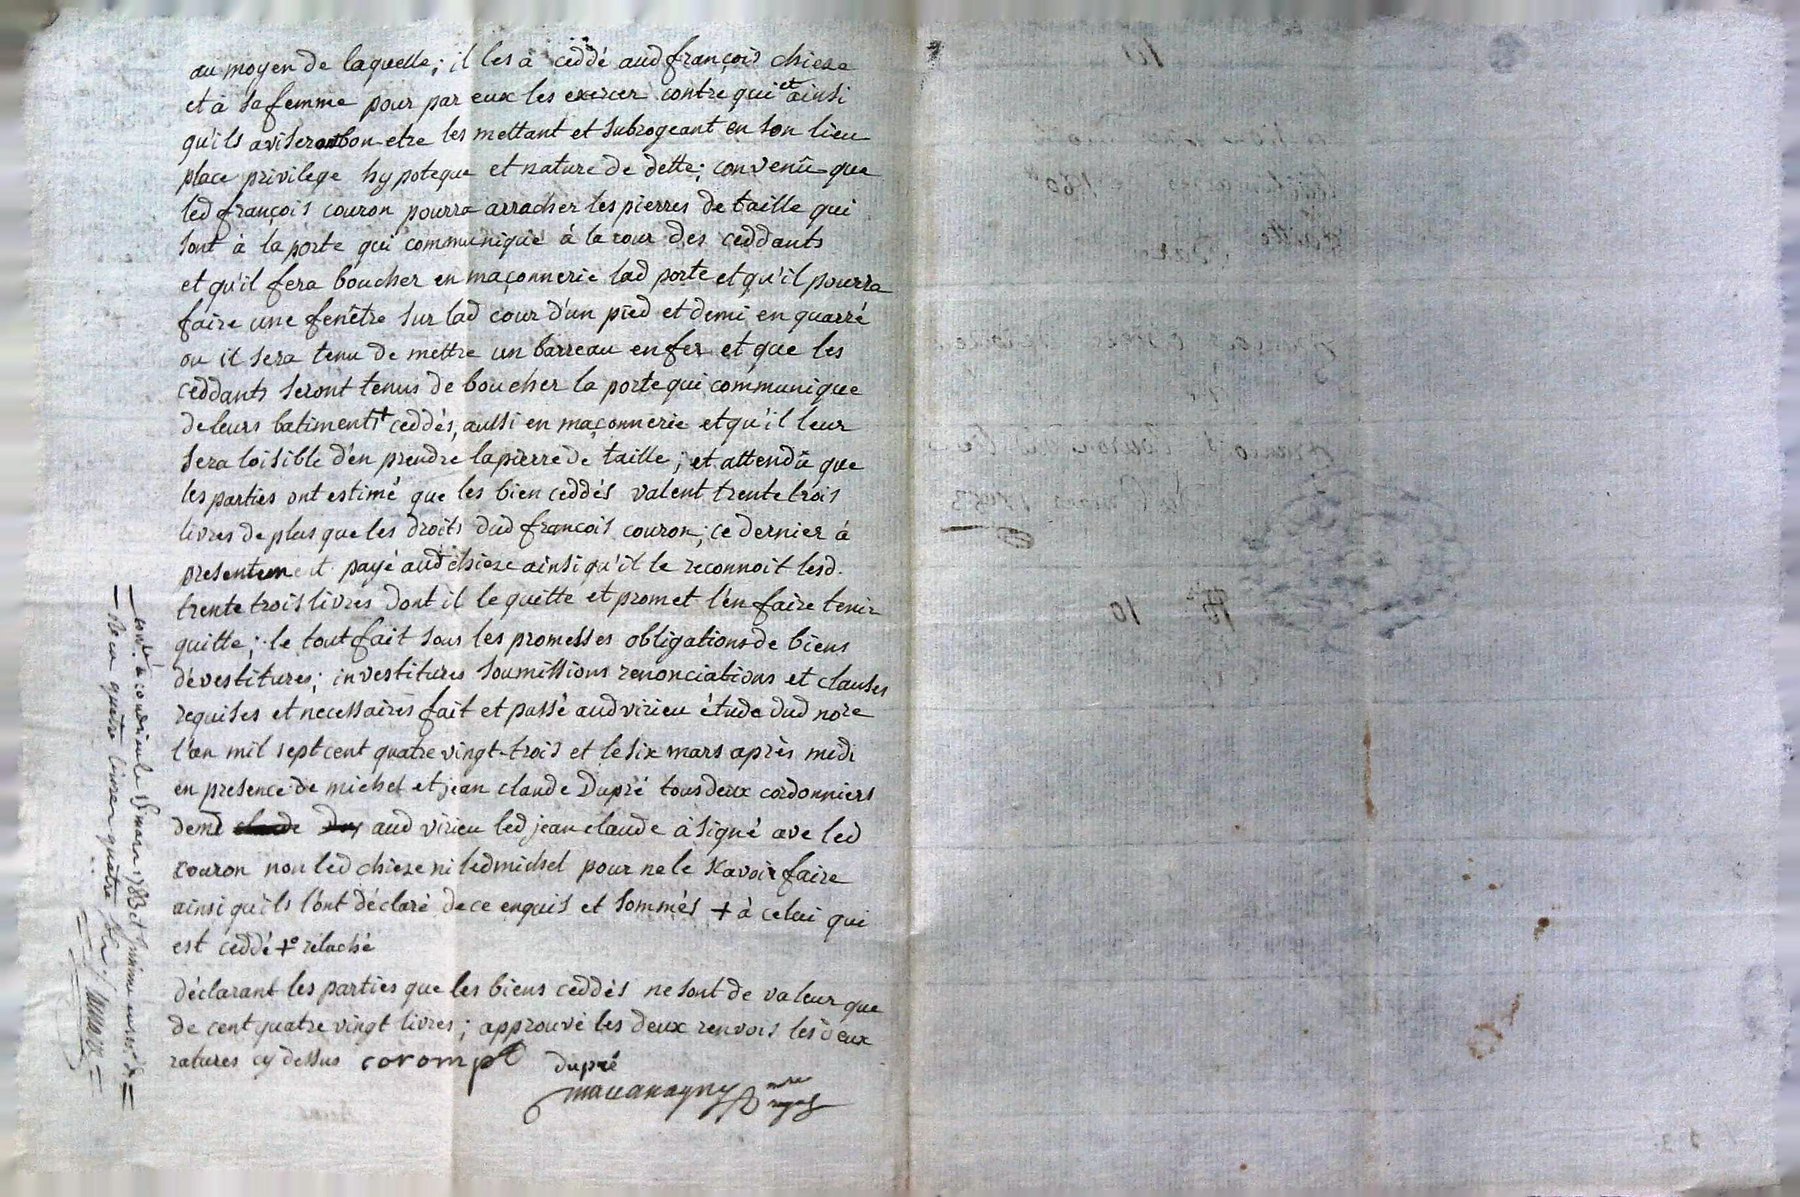 au moyen de laquelle; il les à ceddé aud françois chieze
et à sa femme pour par eux les exercer contre qui et ainsi
qu'ils aviseront bon etre les mettant et subrogeant en son lieu
place privilege hypoteque et nature de dette; convenû que
led françois couron pourra arracher les pierres de taille qui
sont à la porte qui communique à la cour des ceddants
et qu'il fera boucher en maçonnerie lad porte et qu'il pourra
faire une fenêtre sur lad cour d'un pied et demi en quarré
ou il sera tenu de mettre un barreau en fer et que les
ceddants seront tenus de boucher la porte qui communique
de leurs batiments + ceddés, aussi en maçonnerie et qu'il leur
sera loisible d'en prendre la pierre de taille; et attendû que
les parties ont estimé que les bien ceddés valent trente trois
livres de plus que les droits dud françois couron; ce dernier à
presentement payé aud chieze ainsi qu'il le reconnoit lesd.
trente trois livres dont il le quitte et promet l'en faire tenir
quitte; le tout fait sous les promesses obligations de biens
dévestitures; investitures soumissions renonciations et clauses
requises et necessaires fait et passé aud virieu étude dud nore
l'an mil sept cent quatre vingt-trois et le six mars après midi
en presence de michel et jean claude Dupré tous deux cordonniers
deme aud virieu led jean claude à signé ave led
couron non led chieze ni led michel pour ne le scavoir faire
ainsi qu'ils l'ont déclaré de ce enquis et sommés + à celui qui
est ceddé +o relaché
déclarant les parties que les biens ceddés ne sont de valeur que
de cent quatre vingt livres; approuvé les deux renvois les deux
ratures cy dessus corompt dupré
1783
Reçu quatre livres quatre
10
10